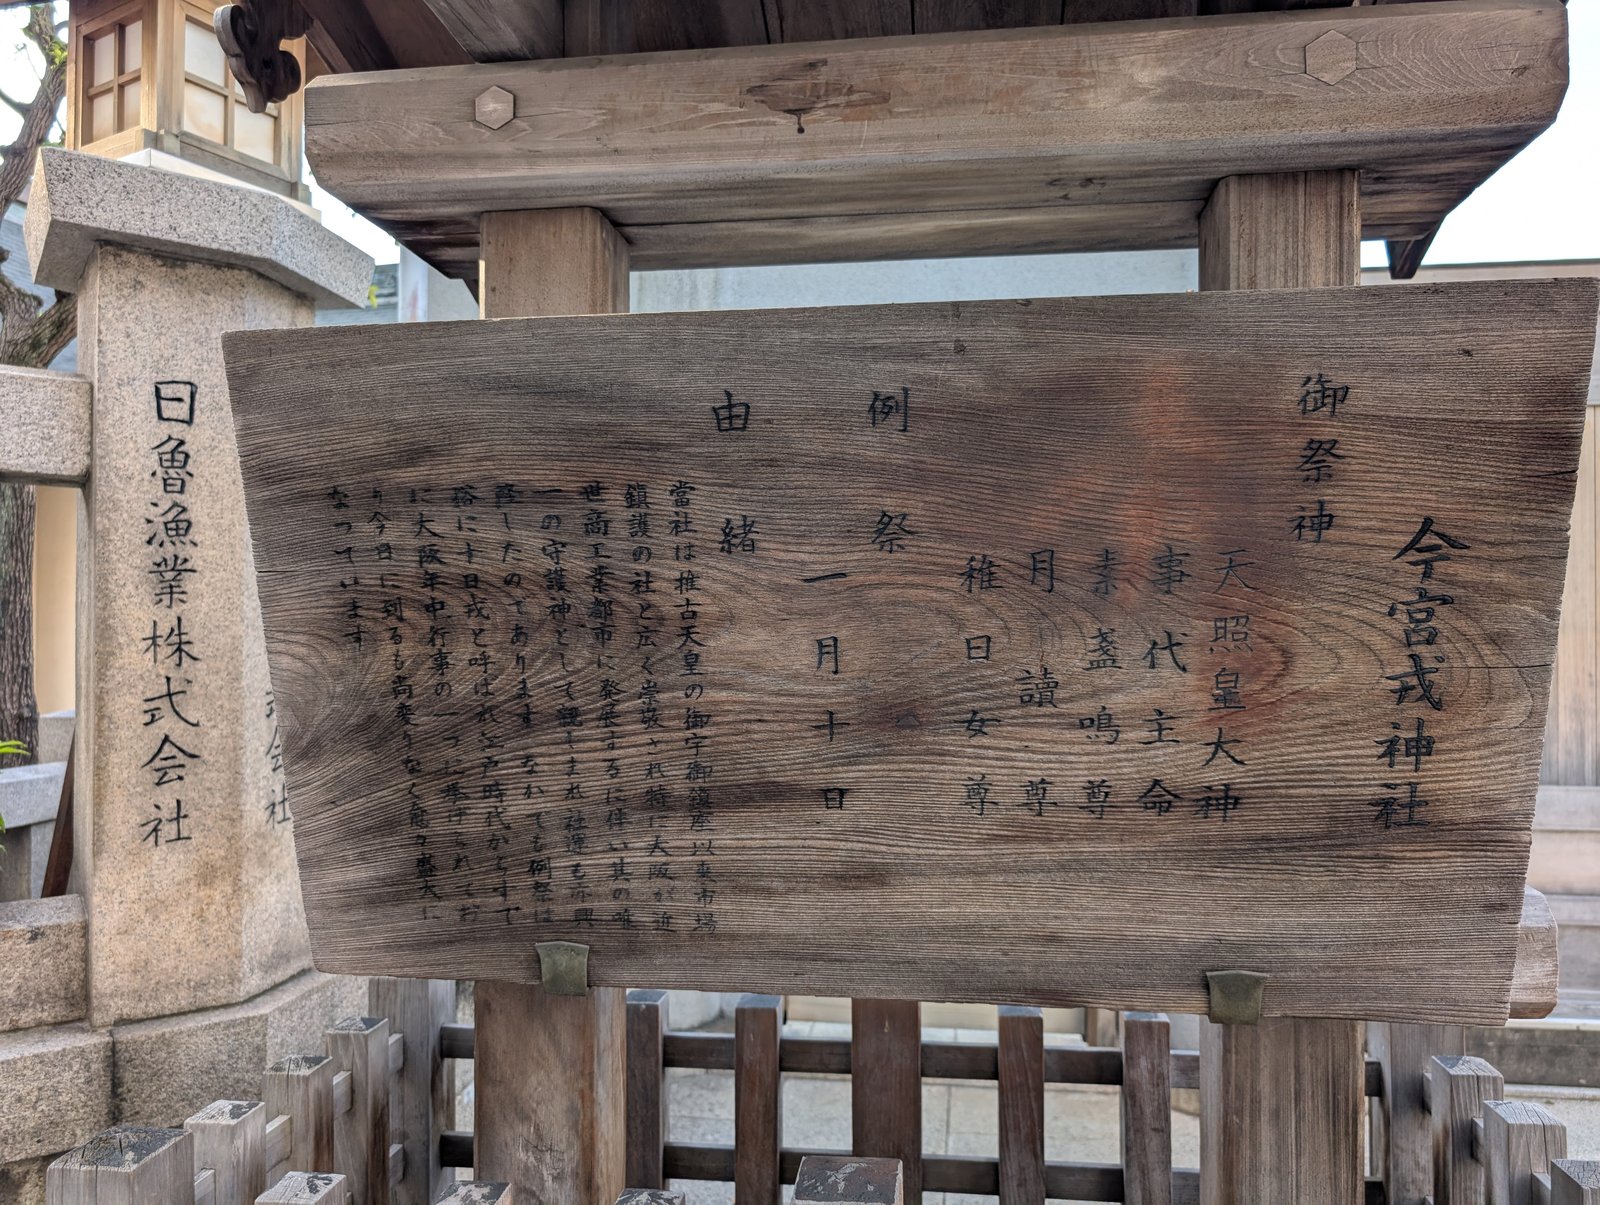 今宮戎神社
御祭神
天照皇大神
事代主命
素盞鳴尊
月讀尊
稚日女尊
例祭
一月十日
由緒
當社は推古天皇の御宇御鎮座以来市場
鎮護の社と広く崇敬され特に大阪が近
世商工業都市に発展するに伴い其の唯
一の守護神として親しまれ社運も亦興
隆したのであります なれても例祭は
俗に十日戎と呼ばれ江戸時代からすで
に大阪年中行事の一つに挙げられてお
り今日に到るも尚変りなく益々盛大に
なっています
日魯漁業株式会社
式会社